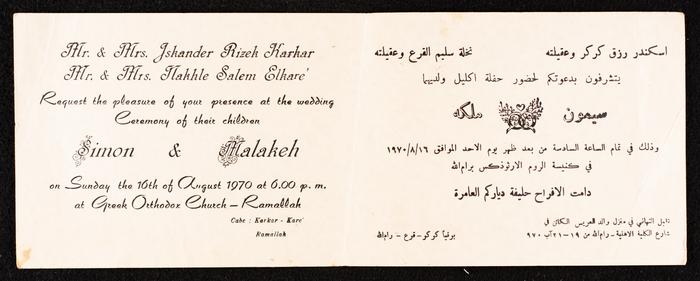 Mr. & Mrs. Iskander Rizek Karkar
Mr. & Mrs. Nakhle Salem Elkare'
Request the pleasure of your presence at the wedding
Ceremony of their children
Simon & Malakeh
on Sunday the 16th of August 1970 at 6.00 p. m.
at Greek Orthodox Church - Ramallah
Cabe : Karkar - Kare'
Ramallah
اسكندر رزق كركر وعقيلته
نخلة سليم القرع وعقيلته
يتشرفون بدعوتكم لحضور حفلة اكليل ولديهما
سيمون
ملكه
وذلك في تمام الساعة السادسة من بعد ظهر يوم الاحد الموافق ١٩٧٠/٨/١٦
في كنيسة الروم الارثوذكس برام الله
دامت الافراح حليفة دياركم العامرة
تقبل التهاني في منزل والد العريس الكائن في
شارع الكلية الاهلية - رام الله من ١٩-٢١ آب ٩٧٠
برقياً كركر - قرع - رام الله